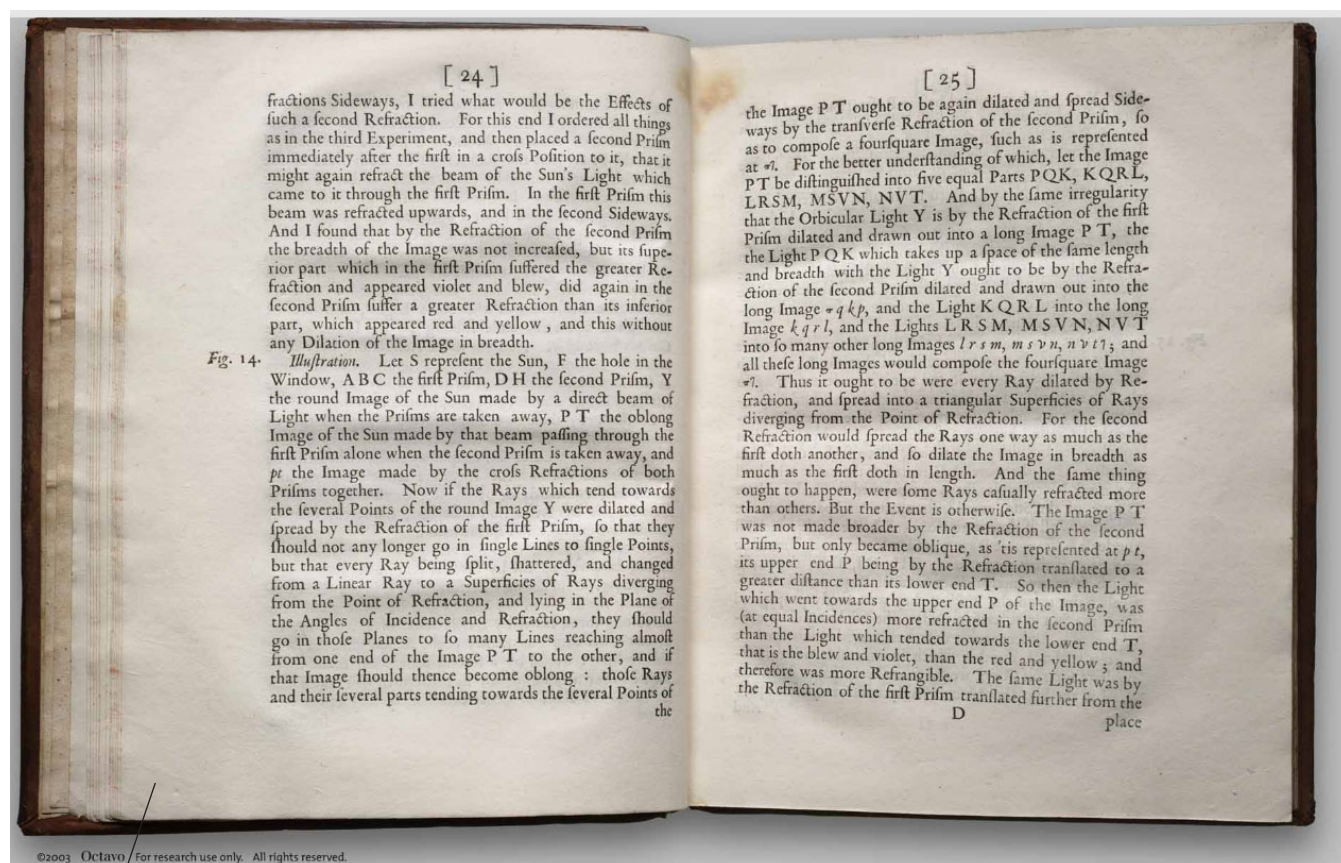 [ 24 ]
fractions Sideways, I tried what would be the Effects of
ſuch a ſecond Refraction. For this end I ordered all things
as in the third Experiment, and then placed a ſecond Priſm
immediately after the firſt in a croſs Poſition to it, that it
might again refract the beam of the Sun's Light which
came to it through the firſt Priſm. In the firſt Priſm this
beam was refracted upwards, and in the ſecond Sideways.
And I found that by the Refraction of the ſecond Priſm
the breadth of the Image was not increaſed, but its ſupe-
rior part which in the firſt Priſm ſuffered the greater Re-
fraction and appeared violet and blew, did again in the
ſecond Priſm ſuffer a greater Refraction than its inferior
part, which appeared red and yellow , and this without
any Dilation of the Image in breadth.
Fig. 14. Illuſtration. Let S repreſent the Sun, F the hole in the
Window, A B C the firſt Priſm, D H the ſecond Priſm, Y
the round Image of the Sun made by a direct beam of
Light when the Priſms are taken away, P T the oblong
Image of the Sun made by that beam paſſing through the
firſt Priſm alone when the ſecond Priſm is taken away, and
pt the Image made by the croſs Refractions of both
Priſms together. Now if the Rays which tend towards
the ſeveral Points of the round Image Y were dilated and
ſpread by the Refraction of the firſt Priſm, ſo that they
ſhould not any longer go in ſingle Lines to ſingle Points,
but that every Ray being ſplit, ſhattered, and changed
from a Linear Ray to a Superficies of Rays diverging
from the Point of Refraction, and lying in the Plane of
the Angles of Incidence and Refraction, they ſhould
go in thoſe Planes to ſo many Lines reaching almoſt
from one end of the Image P T to the other, and if
that Image ſhould thence become oblong : thoſe Rays
and their ſeveral parts tending towards the ſeveral Points of
the
[ 25 ]
the Image P T ought to be again dilated and ſpread Side-
ways by the tranſverſe Refraction of the ſecond Priſm, ſo
as to compoſe a fourſquare Image, ſuch as is repreſented
at πτ. For the better underſtanding of which, let the Image
PT be diſtinguiſhed into five equal Parts PQK, KQRL,
LRSM, MSVN, NVT. And by the ſame irregularity
that the Orbicular Light Y is by the Refraction of the firſt
Priſm dilated and drawn out into a long Image P T, the
the Light P Q K which takes up a ſpace of the ſame length
and breadth with the Light Y ought to be by the Refra-
ction of the ſecond Priſm dilated and drawn out into the
long Image π q k p, and the Light K Q R L into the long
Image k q r l, and the Lights L R S M, M S V N, N V T
into ſo many other long Images l r s m, m s v n, n v t τ; and
all theſe long Images would compoſe the fourſquare Image
πτ. Thus it ought to be were every Ray dilated by Re-
fraction, and ſpread into a triangular Superficies of Rays
diverging from the Point of Refraction. For the ſecond
Refraction would ſpread the Rays one way as much as the
firſt doth another, and ſo dilate the Image in breadth as
much as the firſt doth in length. And the ſame thing
ought to happen, were ſome Rays caſually refracted more
than others. But the Event is otherwiſe. The Image P T
was not made broader by the Refraction of the ſecond
Priſm, but only became oblique, as 'tis repreſented at p t,
its upper end P being by the Refraction tranſlated to a
greater diſtance than its lower end T. So then the Light
which went towards the upper end P of the Image, was
(at equal Incidences) more refracted in the ſecond Priſm
than the Light which tended towards the lower end T,
that is the blew and violet, than the red and yellow ; and
therefore was more Refrangible. The ſame Light was by
the Refraction of the firſt Priſm tranſlated further from the
D
place
©2003 Octavo For research use only. All rights reserved.